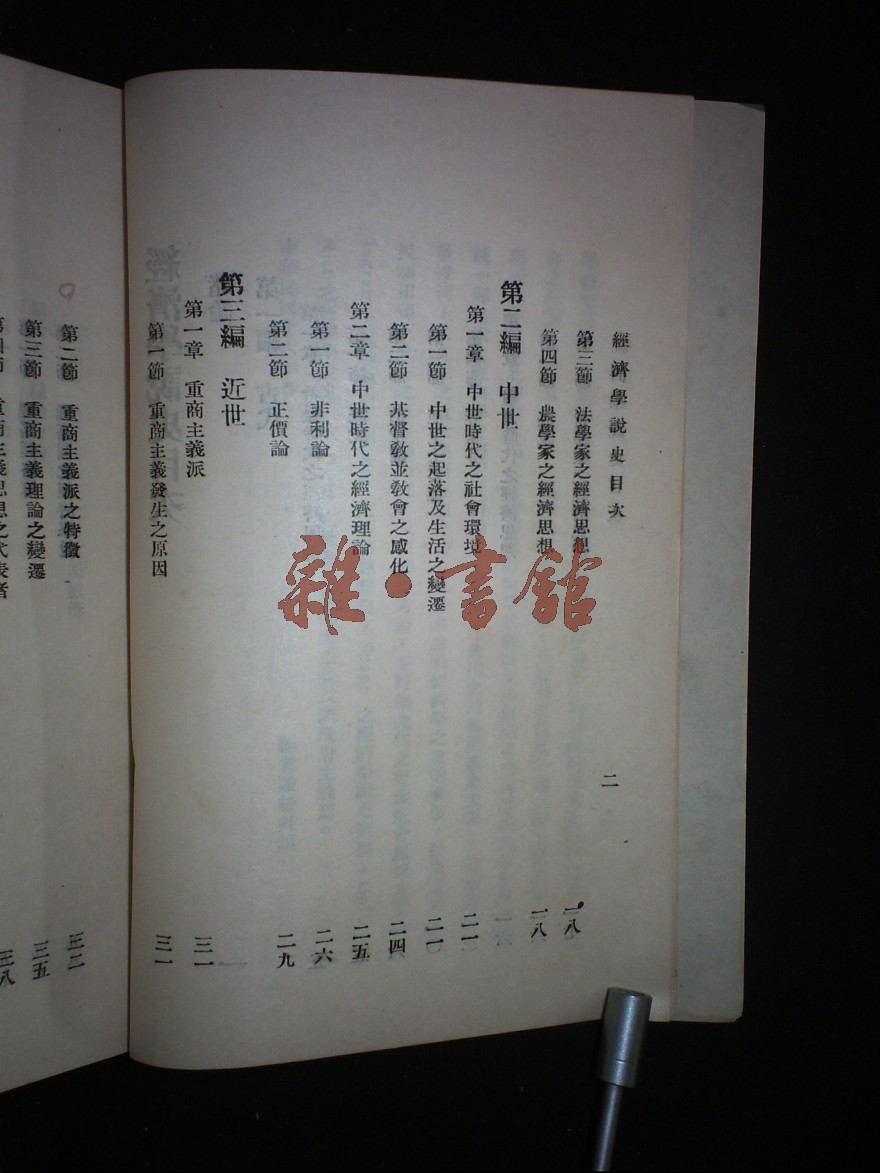 經濟學說史目次
二
第三節 法學家之經濟思想 一八
第四節 農學家之經濟思想 一八
第二編 中世
第一章 中世時代之社會環境 二一
第一節 中世之起落及生活之變遷 二一
第二節 基督敎並敎會之感化 二四
第二章 中世時代之經濟理論 二五
第一節 非利論 二六
第二節 正價論 二九
第三編 近世
第一章 重商主義派 三一
第一節 重商主義發生之原因 三一
第二節 重商主義派之特徵 三二
第三節 重商主義理論之變遷 三五
第四節 重商主義思想之代表者 三八
雜·書館